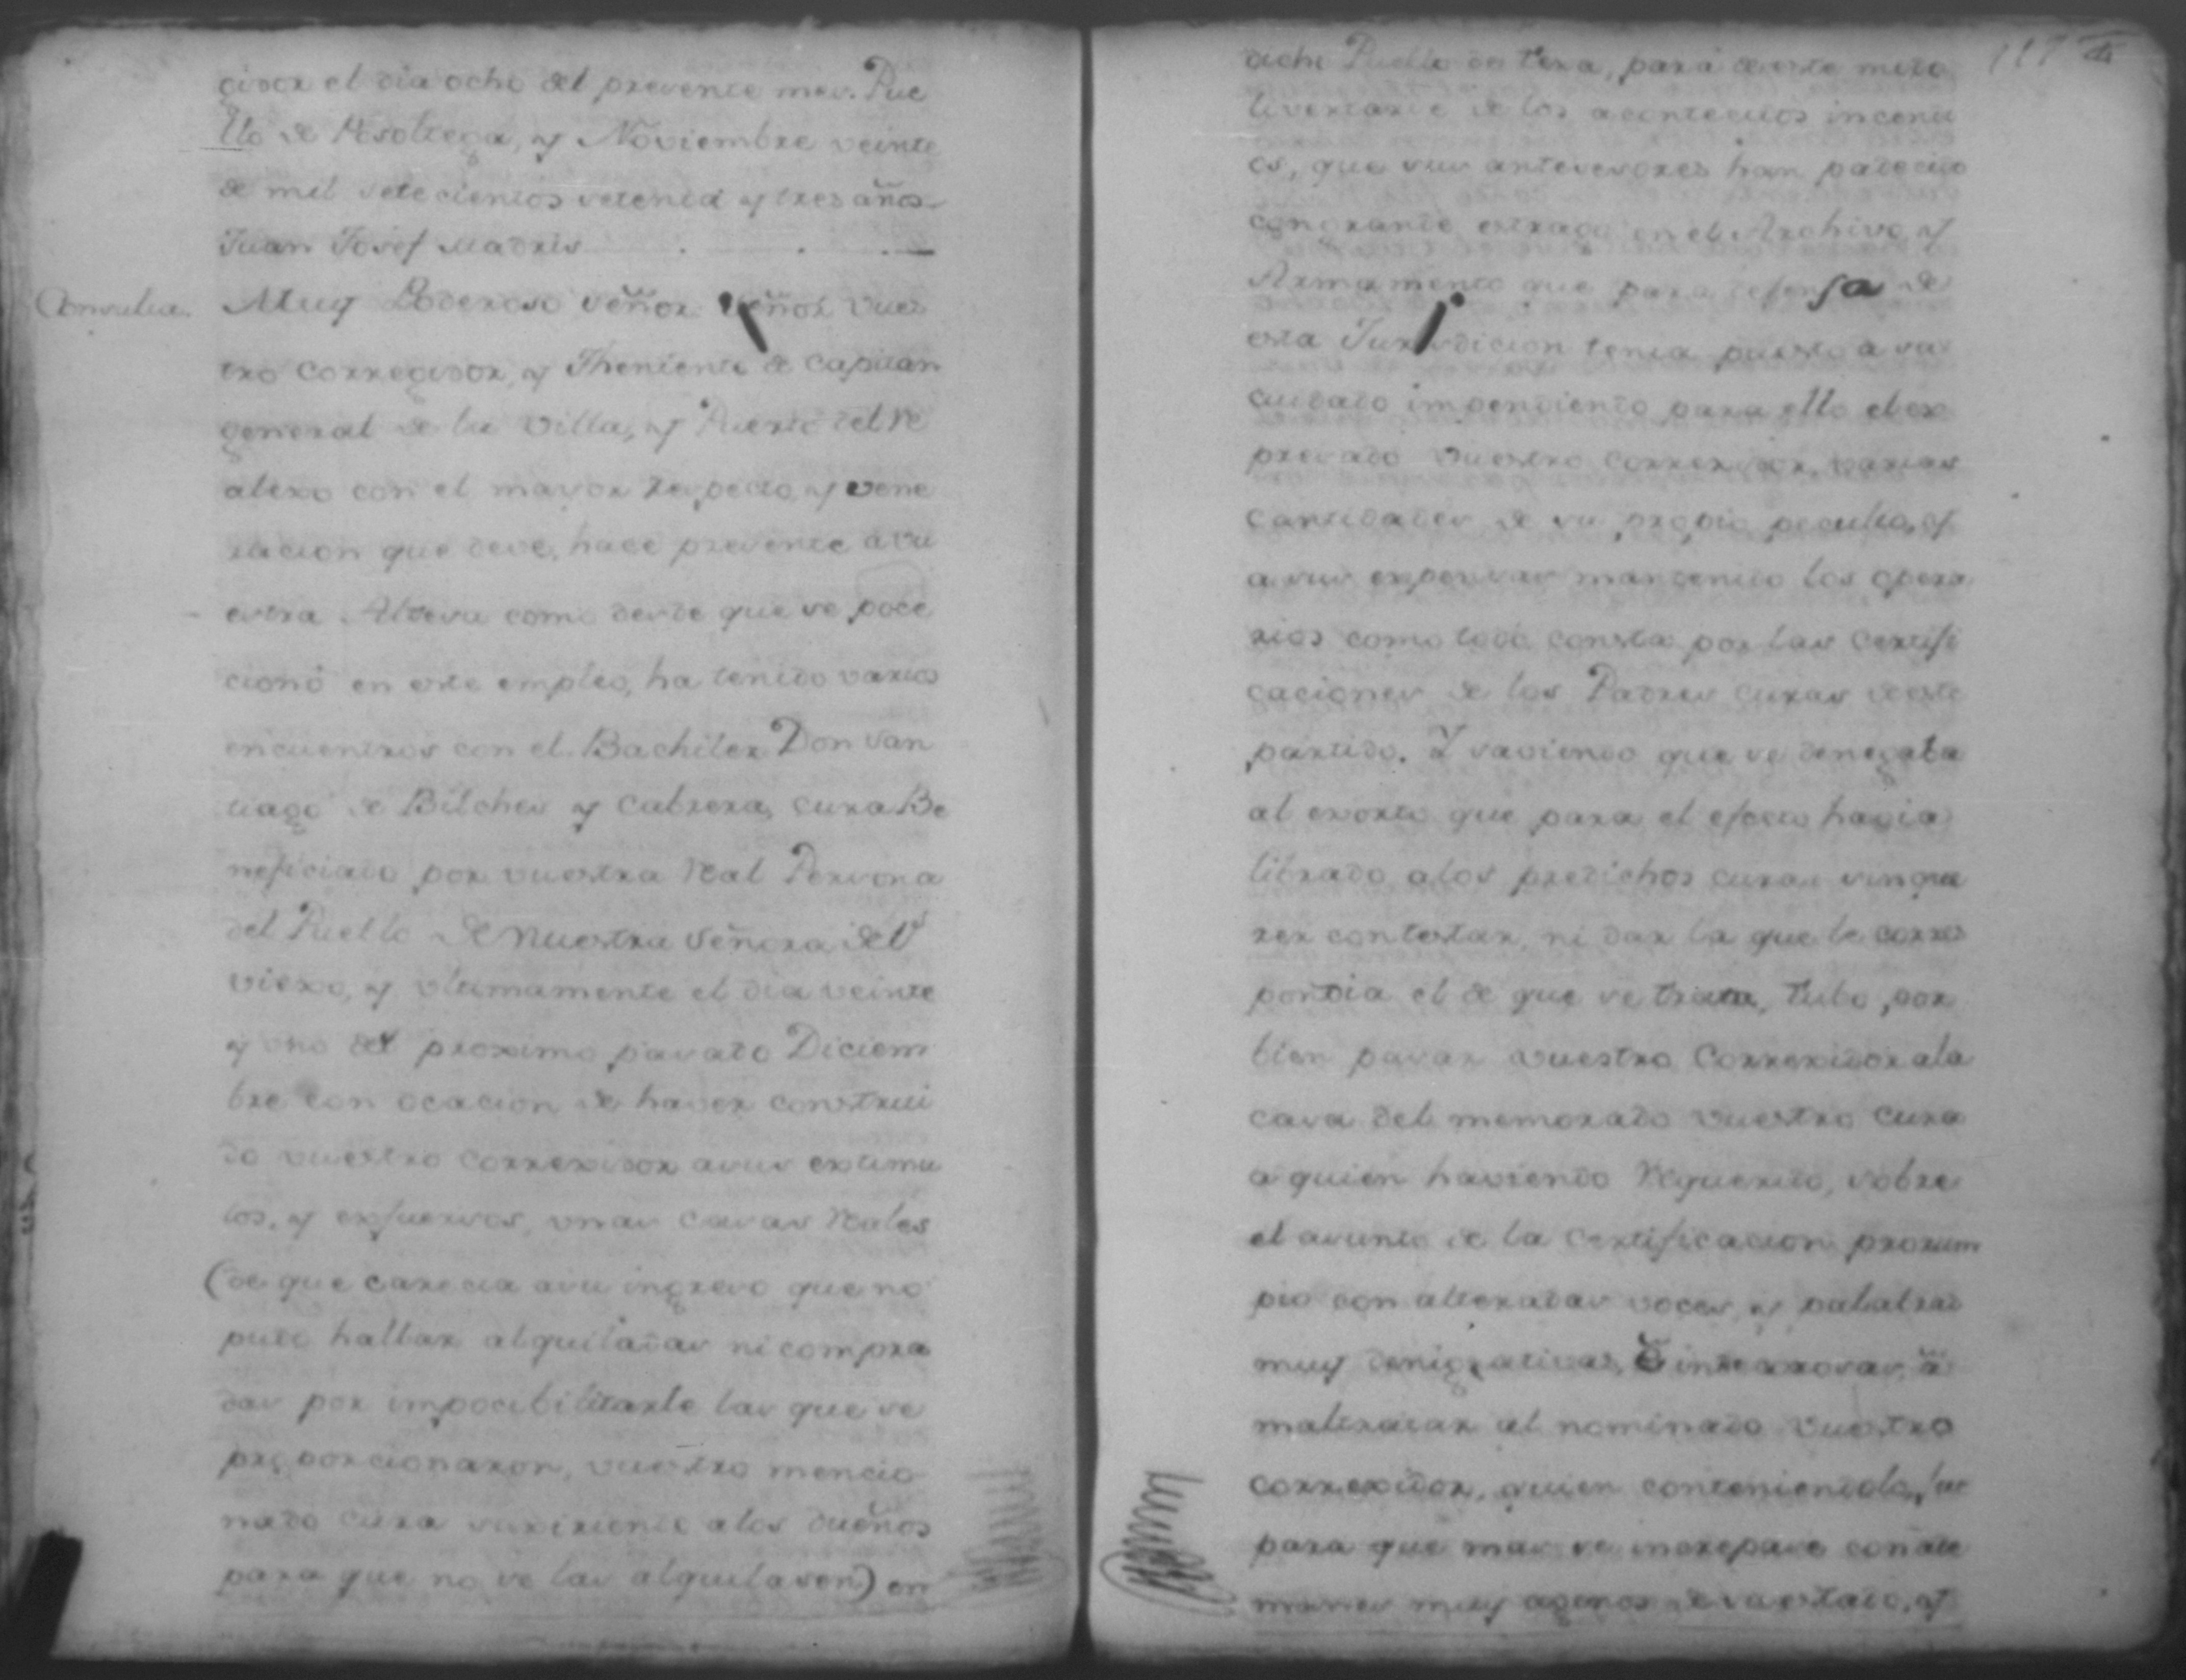 gidor el dia ocho del presente mes. Pue
blo de Posoltega, y Noviembre veinte
de mil setecientos setenta y tres años
Juan Josef Madris
Consulta. Muy Poderoso señor señor vues
tro corregidor, y Theniente de capitan
general de la villa, y Puerto del Re
alexo con el mayor respecto, y vene
racion que deve, hace presente a vu
estra Alteza como desde que se poce
cionó en este empleo, ha tenido varios
encuentros con el Bachiler Don San
tiago de Bilches y Cabrera, cura Be
neficiado por vuestra Real Persona
del Pueblo de nuestra señora del
viexo, y ultimamente el dia veinte
y uno del proximo pasado Diciem
bre con ocacion de haver construi
do vuestro correxidor a sus extimu
los, y exfuersos, unas casas Reales
(de que carecia a su ingreso que no
pudo hallar alquiladas ni compra
das por impocibilitarle las que se
proporcionaron, vuestro mencio
nado cura suxiriendo a los dueños
para que no se las alquilasen) en
117
dicho Pueblo de texa, para de este modo
livertarse de los acontecidos incendi
os, que sus antesesores han padecido
con grande estrago en el Archivo, y
Armamento que para defensa de
esta Jurisdicion tenia puesto a su
cuidado impendiendo para ello el ex
presado vuestro correxidor varias
cantidades de su propio peculio, y
a sus expensas mantenido los opera
rios como todo consta por las certifi
caciones de los Padres curas de este
partido. Y saviendo que se denegaba
al exorto que para el efecto havia
librado a los predichos curas sin que
rer contestar, ni dar la que le corres
pondia el de que se trata, tubo por
bien pasar vuestro Correxidor a la
casa del memorado vuestro cura
a quien haviendo Requerido, sobre
el asunto de la certificacion prorum
pio con alteradas voces, y palabras
muy denigrativas,
maltratar al nominado vuestro
correxidor, quien conteniendolo,
para que mas se increpase con ade
manes muy agenos de su estado, y